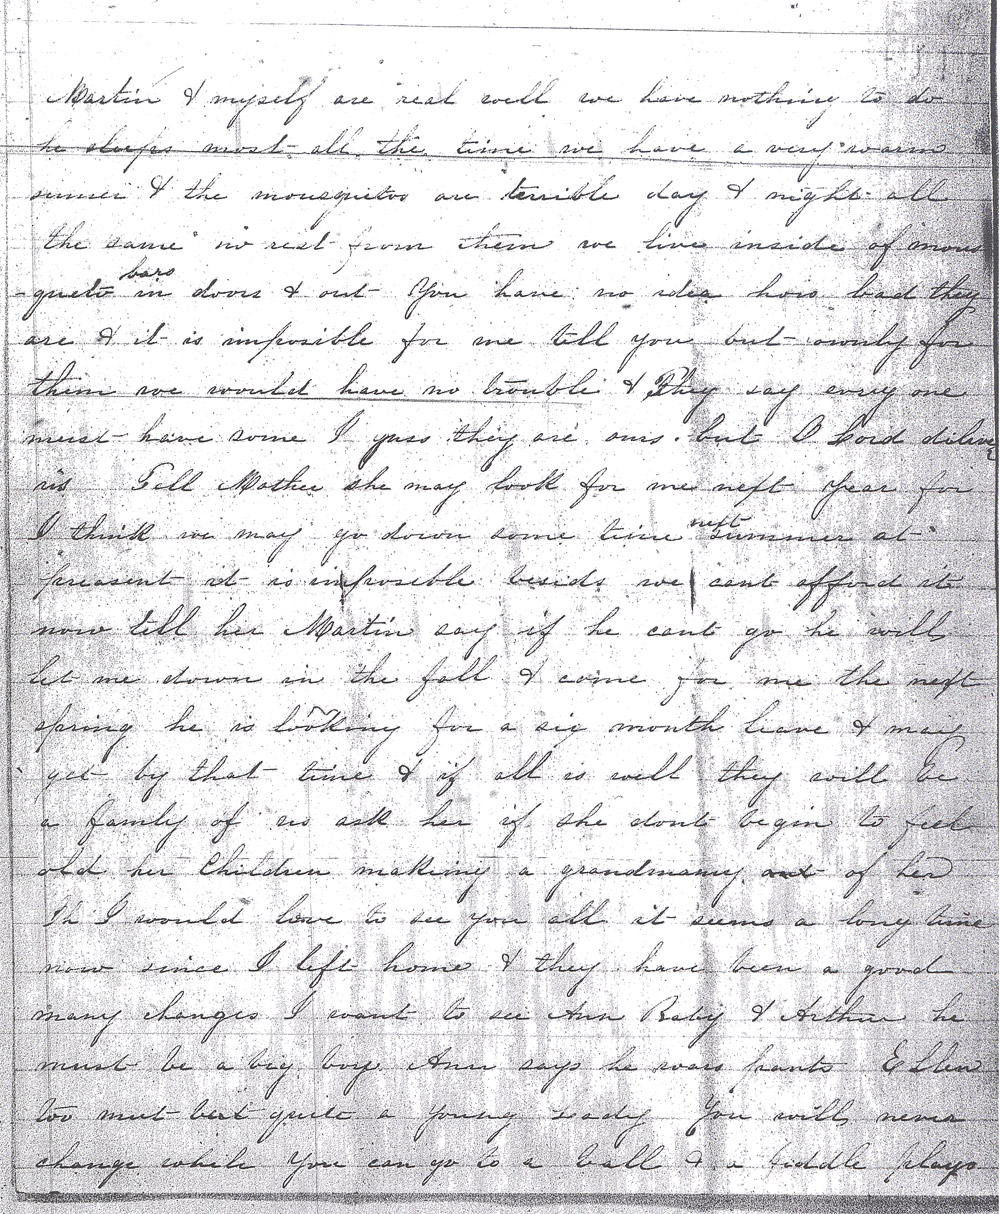 Martin & myself are real well we have nothing to do
he sleeps most all the time we have a very warm
sumer & the mousquetoo are terrible day & night all
the same no rest from them we live inside of mous
-queto bars in doors & out You have no idea how bad they
are & it is imposible for me tell you but ownly for
them we would have no trouble & They say every one
must have some I guss they are ours. but O Lord diliver
us Tell Mother she may look for me neft year for
I think we may go down some time neft summer at
preasent it is imposible besids we cant afford it
now tell her Martin say if he cant go he will
let me down in the fall & come for me the neft
spring he is looking for a six month leave & may
get by that time & if all is well they will be
a family of us ask her if she dont begin to feel
old her Children making a grandmamy out of her
Oh I would love to see you all it seems a long time
now since I left home & they have been a good
many changes I want to see Ann Baby & Arthur he
must be a big boy Ann says he wars pants Ellen
too must be quite a young Lady You will never
change while You can go to a ball & a fiddle plays